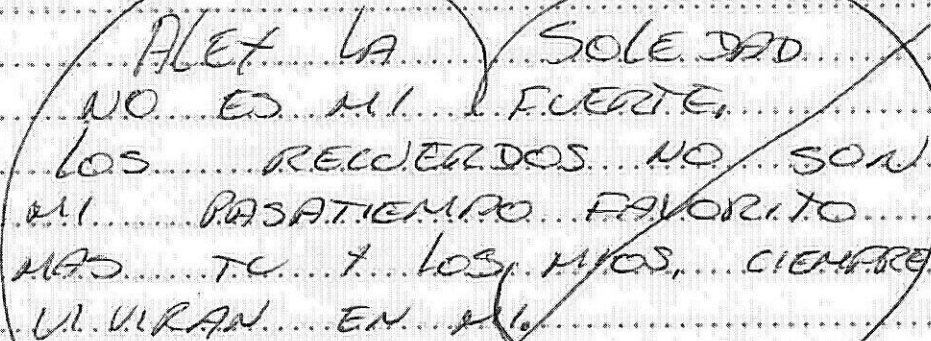 ALEX LA SOLEDAD
NO ES MI FUERTE,
LOS RECUERDOS NO SON
MI PASATIEMPO FAVORITO
MAS TU Y LOS MIOS, CIEMPRE
VIVIRAN EN MI.